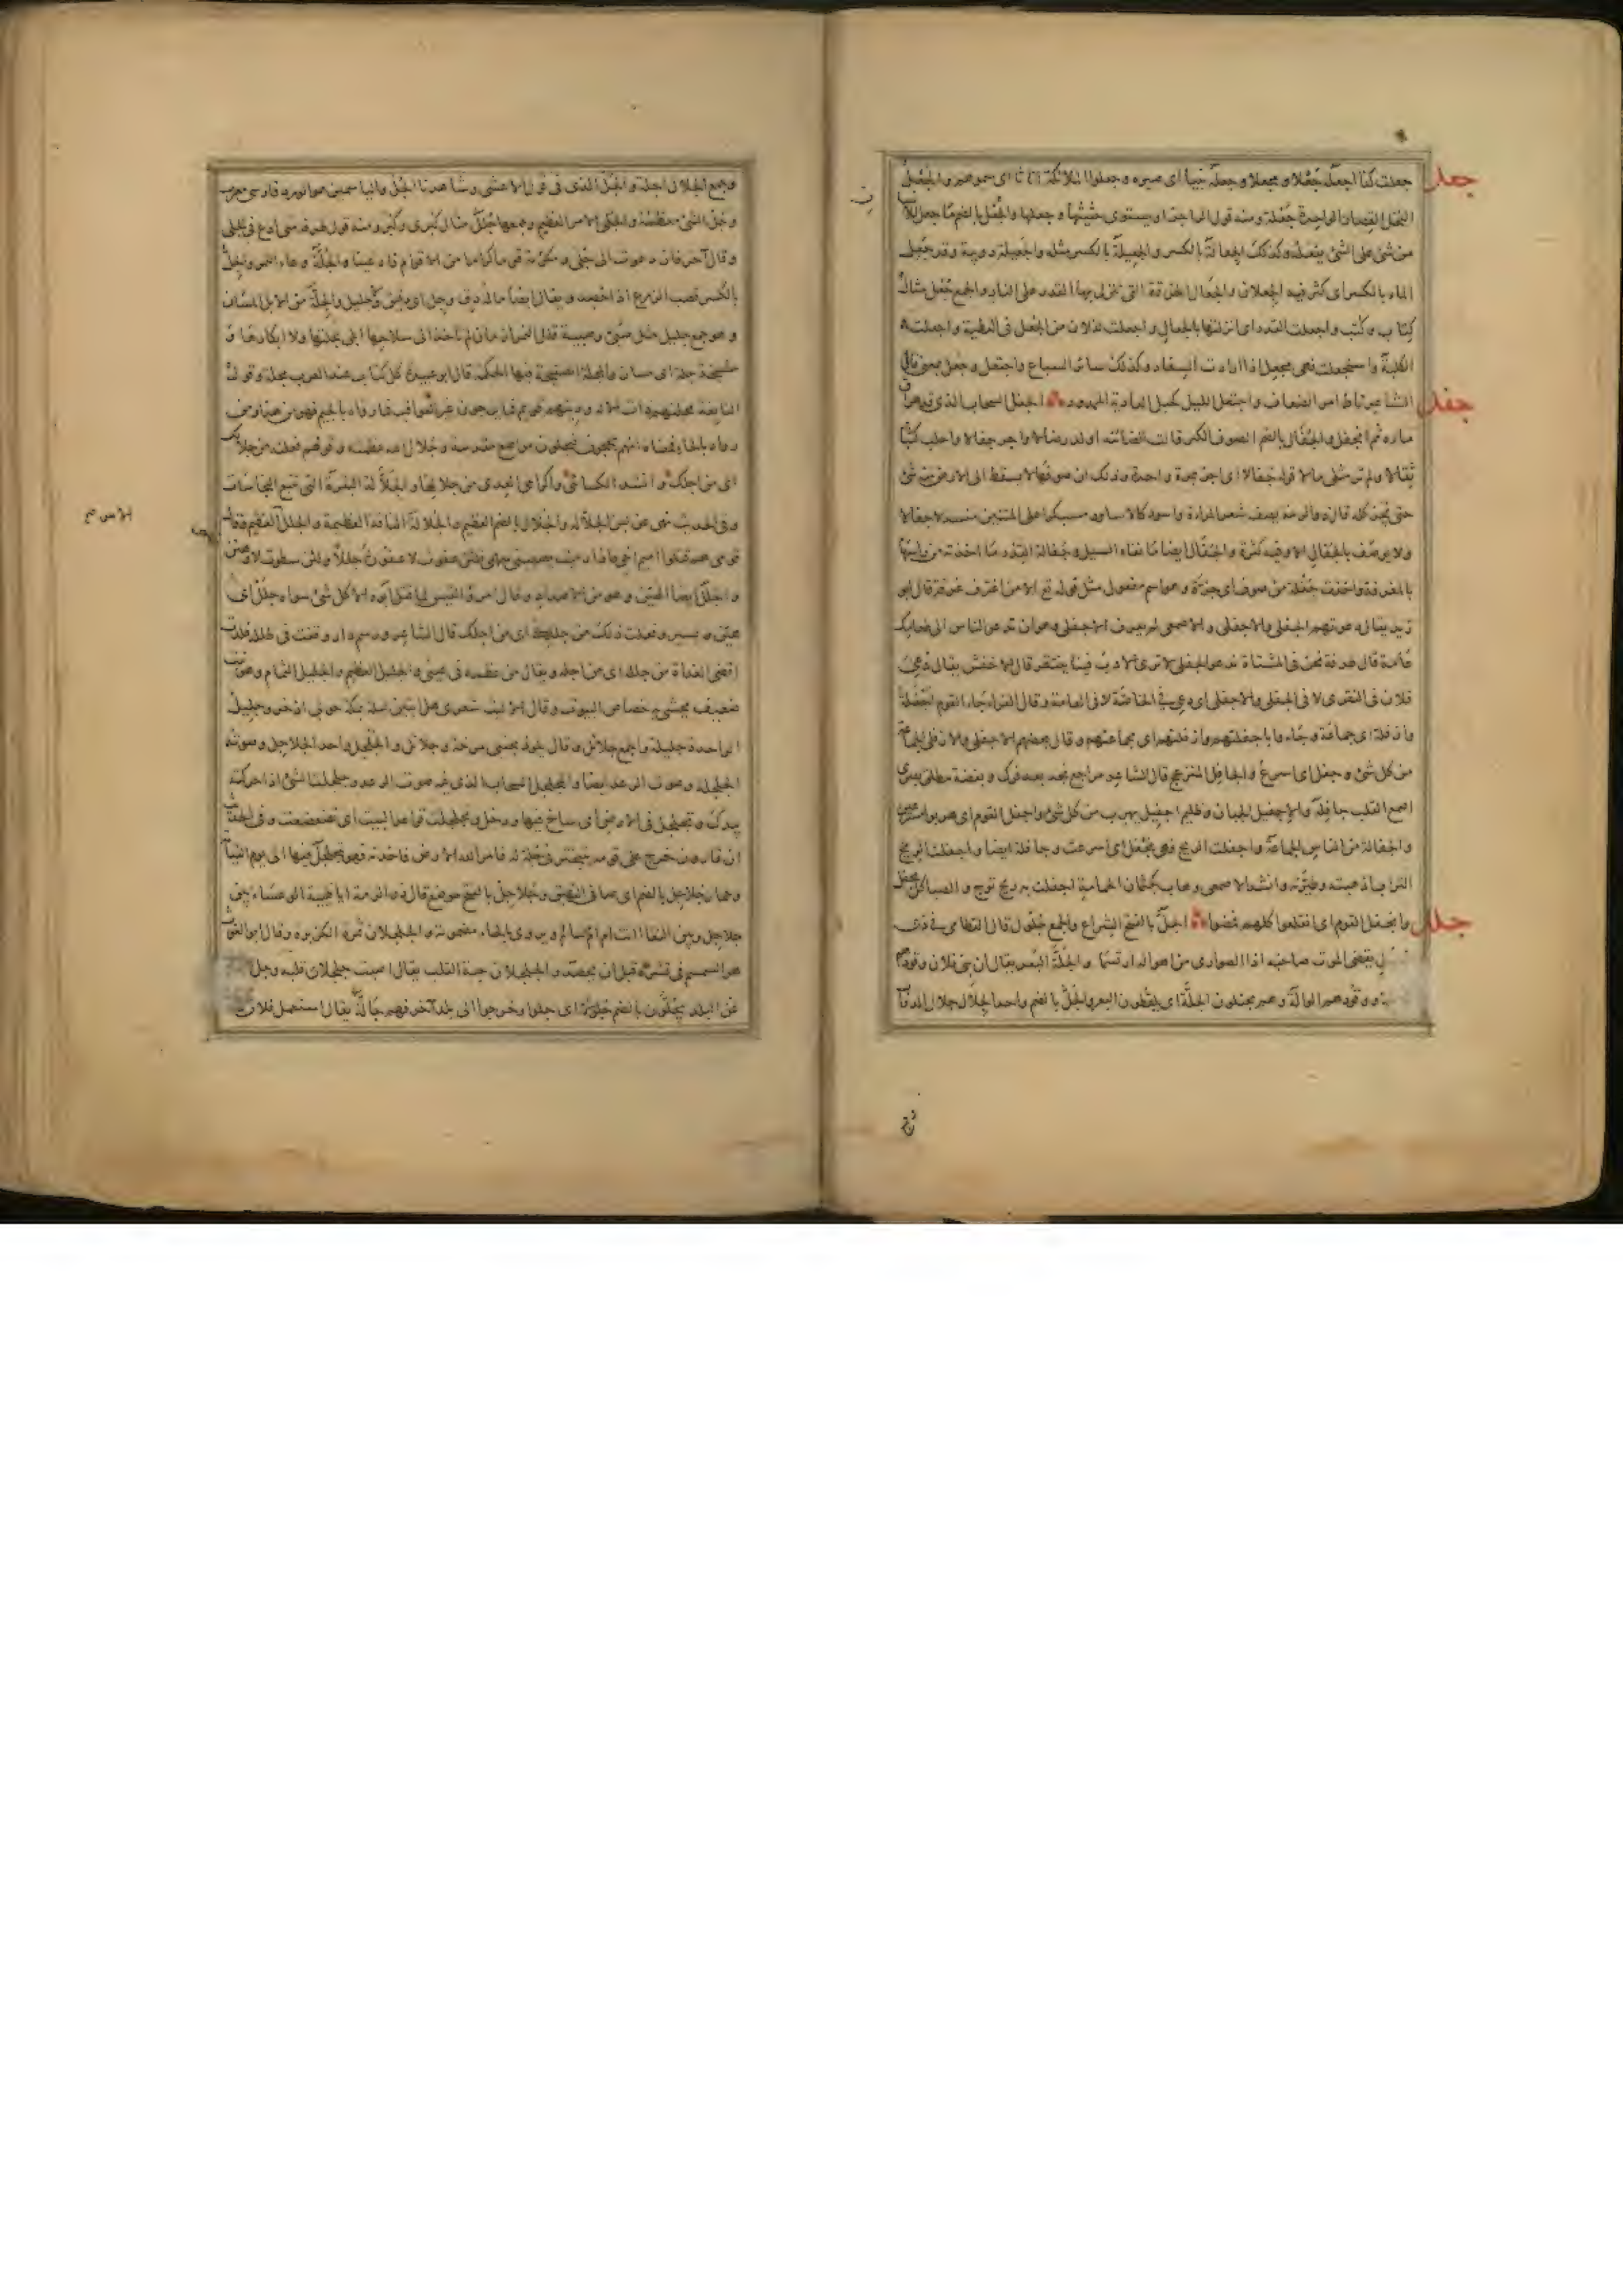 جعل
جعلت كذا اجعله جعلا ومجعلا وجعله نبيا اى صيره وجعلوا الملائكة اناثا اى سموهم والجعل
النخل القصار الواحدة جعلة ومنه قول الراجز او يستوى جثيثها وجعلها والجعل بالضم ما جعل للانسان
من شئ على الشئ يفعله وكذلك الجعالة بالكسر والجعيلة بالكسر مثله والجعل دويبة وقد جعل
الماء بالكسر اى كثر فيه الجعلان والجعال الخرقة التى ينزل بها القدر على النار والجمع جعل مثال
كتاب وكتب واجعلت القدر اى انزلتها بالجعال واجعلت لفلان من الجعل فى العطية واجعلت
الكلبة واستجعلت فهى مجعل اذا ارادت السفاد وكذلك سائر السباع واجتعل وجعل بمعنى قال
جفل
الشاعر ناط امر الضعاف واجتعل الليل كحبل العادية الممدود الجفل السحاب الذى قد هراق
ماءه ثم انجفل والجفال بالضم الصوف الكثير قالت الضائنة اولد رخالا واجز جفالا واحلب كثبا
ثقالا ولم تر مثلى مالا قوله جفالا اى اجز بمرة واحدة وذلك ان صوفها لا يسقط الى الارض منه شئ
حتى يجز كله قال ذو الرمة يصف شعر المرأة واسود كالاساود مسبكرا على المتنين منسدلا جفالا
ولا يوصف بالجفال الا وفيه كثرة والجفال ايضا ما نفاه السيل وجفالة القدر ما اخذته من راسها
بالمغرفة واخذت جفلة من صوف اى جزة وهو اسم مفعول مثل قوله تع الا من اغترف غرفة قال ابو
زيد يقال دعوتهم الجفلى والاجفلى والاصمعى لم يعرف الاجفلى وهو ان تدعو الناس الى طعامك
عامة قال طرفة نحن فى المشتاة ندعو الجفلى لا ترى الآدب فينا ينتقر قال الاخفش يقال دعى
فلان فى النقرى لا فى الجفلى والاجفلى اى دعى فى الخاصة لا فى العامة وقال الفراء جاء القوم اجفلة
وازفلة اى جماعة وجاءوا باجفلتهم وازفلتهم اى بجماعتهم وقال بعضهم الاجفلى والازفلى الجماعة
من كل شئ وجفل اى اسرع والجافل المنزعج قال الشاعر مراجع نجد بعد فرك وبغضة مطلق بصرى
اصمع القلب جافله والاجفيل الجبان وظليم اجفيل يهرب من كل شئ واجفل القوم اى هربوا مسرعين
والجفالة من الناس الجماعة واجفلت الريح فهى مجفل اى اسرعت وجافلة ايضا واجفلت الريح
التراب اذهبته وطيرته وانشد الاصمعى وهاب كجثمان الحمامة اجفلت به ريح ترج والصبا كل مجفل
جلل
وانجفل القوم اى انقلعوا كلهم فمضوا الجل بالفتح الشراع والجمع جلول قال القطامى فى ذى
جلول يقضى الموت صاحبه اذا الصرارى من اهواله ارتسما والجلة البعر يقال ان بنى فلان وقودهم
الجلة ووقودهم الوالة وهم يجتلون الجلة اى يلقطون البعر والجل بالضم واحد الجلال جلال الدواب
وجمع الجلال اجلة والجل الذى فى قول الاعشى وشاهدنا الجل والياسمين هو الورد فارسى معرب
وجل الشئ معظمه والجلى الامر العظيم وجمعها جلل مثال كبرى وكبر ومنه قول طرفة متى ادع فى الجلى
وقال آخر فان دعوت الى جلى ومكرمة قوما كراما من الاقوام فادعينا والجلة وعاء التمر والجل
بالكسر قصب الزرع اذا حصد ويقال ايضا ماله دق وجل اى دقيق وجليل والجلة من الابل المسان
وهو جمع جليل مثل صبى وصبية قال النمر ازمان لم تاخذ الى سلاحها ابلى بجلتها ولا ابكارها و
مشيخة جلة اى مسان والمجلة الصحيفة فيها الحكمة قال ابو عبيد كل كتاب عند العرب مجلة وقول
النابغة مجلتهم ذات الاله ودينهم قويم فما يرجون غير العواقب فمن رواه بالجيم فهو من هذا ومن
رواه بالحاء يعنى انهم يحجون فيحلون مواضع مقدسة وجلال الله عظمته وقولهم فعلته من جلالك
اى من اجلك وانشد الكسائى واكرامى العدى من جلالها والجلالة البقرة التى تتبع النجاسات
وفى الحديث نهى عن لبن الجلالة والجلال بالضم العظيم والجلالة الناقة العظيمة والجلل الامر العظيم قال
الاسم صح
قومى هم قتلوا اميم اخى فاذا رميت يصيبنى سهمى فلئن عفوت لاعفون جللا ولئن سطوت لاوهنن
والجلل ايضا الهين وهو من الاضداد وقال امرؤ القيس لما قتل ابوه الا كل شئ سواه جلل اى
هين ويسير وفعلت ذلك من جللك اى من اجلك قال الشاعر ورسم دار وقفت فى طلله كدت
اقضى الغداة من جلله اى من اجله ويقال من عظمه فى عينى والجليل العظيم والجليل الثمام وهو نبت
ضعيف يحشى به خصاص البيوت وقال الا ليت شعرى هل ابيتن ليلة بمكة حولى اذخر وجليل
الواحدة جليلة والجمع جلائل وقال يلوذ بجنبى مرخة وجلائل والجلجل واحد الجلاجل وصوته
الجلجلة وصوت الرعد ايضا والمجلجل السحاب الذى فيه صوت الرعد وجلجلت الشئ اذا حركته
بيدك وتجلجل فى الارض اى ساخ فيها ودخل وتجلجلت قواعد البيت اى تضعضعت وفى الحديث
ان قارون خرج على قومه يتبختر فى حلة له فامر الله الارض فاخذته فهو يتجلجل فيها الى يوم القيامة
وحمار جلاجل بالضم اى صافى النهيق وجلاجل بالفتح موضع قال ذو الرمة ايا ظبية الوعساء بين
جلاجل وبين النقا اانت ام ام سالم ويروى بالحاء مضمومة والجلجلان ثمرة الكزبرة وقال ابو الغوث
هو السمسم فى قشره قبل ان يحصد والجلجلان حبة القلب يقال اصبت جلجلان قلبه وجل
عن البلد يجلون بالضم جلولا اى جلوا وخرجوا الى بلد آخر فهم جالة يقال استعمل فلان